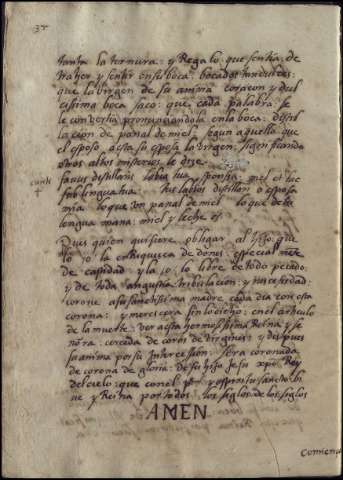 37
tanta la ternura: y Regalo, que sentia, de
traher y sentir en su boca: bocados tan dulces:
que la Virgen de su anima coraçon y dul
cissima boca saco: que cada palabra se
le convertia pronunciandola en la boca: distil
lacion de panal de miel, segun aquello que
el esposo, a esta su esposa la Virgen, significando
otros altos misterios, le dize
favus distillans labia tua sponsa: mel et lac
sub lingua tua. tus labios distillan o esposa
mia lo que un panal de miel. lo que de la
lengua mana: miel y leche es
cant.
4
Pues quien quisiere obligar al hijo que
lo enRiquesca de dones: especial
de castidad y la lo libre de todo peccado;
y de toda angustia, tribulacion: y nescesidad:
corone a su sanctissima madre cada dia con esta
corona: y merecera sin en el articulo
de la muerte: ver a esta hermosissima Reina y se
ñora: cercada de coros de Virgines: y despues
su anima por su intercession: sera coronada
de corona de gloria: de su hijo Jesu xpo Rey
del cielo: que con el y espiritu sancto bi
ve y Reina por todos los siglos de los siglos
AMEN
Comiença